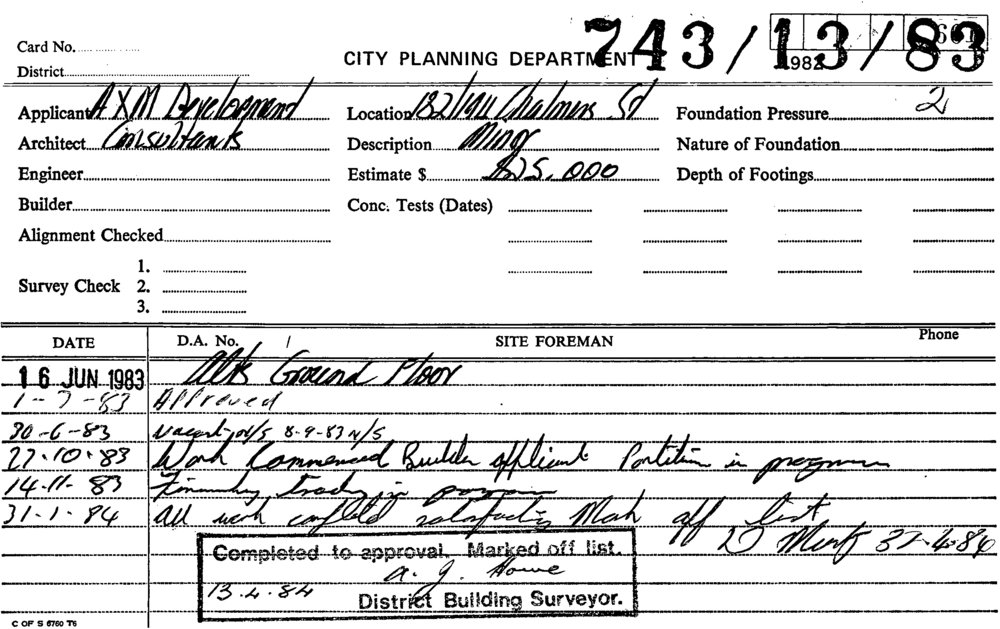 743/13/83
Card No.
CITY PLANNING DEPARTMENT 1982
District
Applicant A X M Development Location 182/194 Chalmers St Foundation Pressure 2
Architect Consultants Description Minor Nature of Foundation
Engineer Estimate $ $25,000 Depth of Footings
Builder Conc. Tests (Dates)
Alignment Checked
1.
Survey Check 2.
3.
DATE D.A. No. / SITE FOREMAN Phone
16 JUN 1983 Alts Ground Floor
1-7-83 Approved
30-6-83 Vacant 8-9-83 N/S
27.10.83 Work Commenced Builder applicant Partition in progress
14-11-83 Finishing trades in progress
31-1-84 All work completed satisfactory Mark off list
Completed to approval. Marked off list.
A. J. Howe
13.4.84 District Building Surveyor.
C OF S 6760 T6